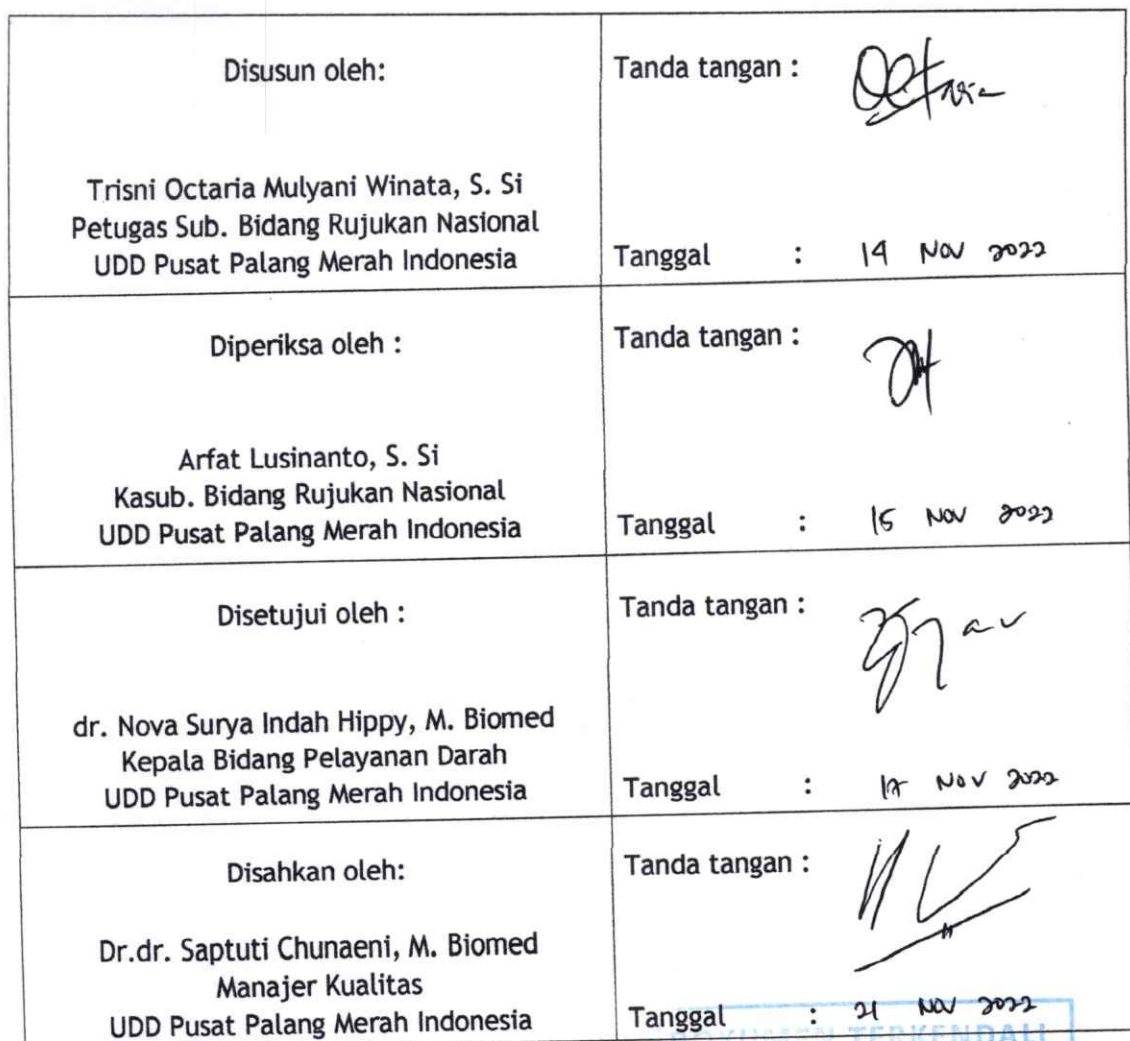 Disusun oleh:
Tanda tangan :
Trisni Octaria Mulyani Winata, S. Si
Petugas Sub. Bidang Rujukan Nasional
UDD Pusat Palang Merah Indonesia
Tanggal : 14 NOV 2022
Diperiksa oleh :
Tanda tangan :
Arfat Lusinanto, S. Si
Kasub. Bidang Rujukan Nasional
UDD Pusat Palang Merah Indonesia
Tanggal : 15 NOV 2022
Disetujui oleh :
Tanda tangan :
dr. Nova Surya Indah Hippy, M. Biomed
Kepala Bidang Pelayanan Darah
UDD Pusat Palang Merah Indonesia
Tanggal : 17 NOV 2022
Disahkan oleh:
Tanda tangan :
Dr.dr. Saptuti Chunaeni, M. Biomed
Manajer Kualitas
UDD Pusat Palang Merah Indonesia
Tanggal : 21 NOV 2022
DOKUMEN TERKENDALI